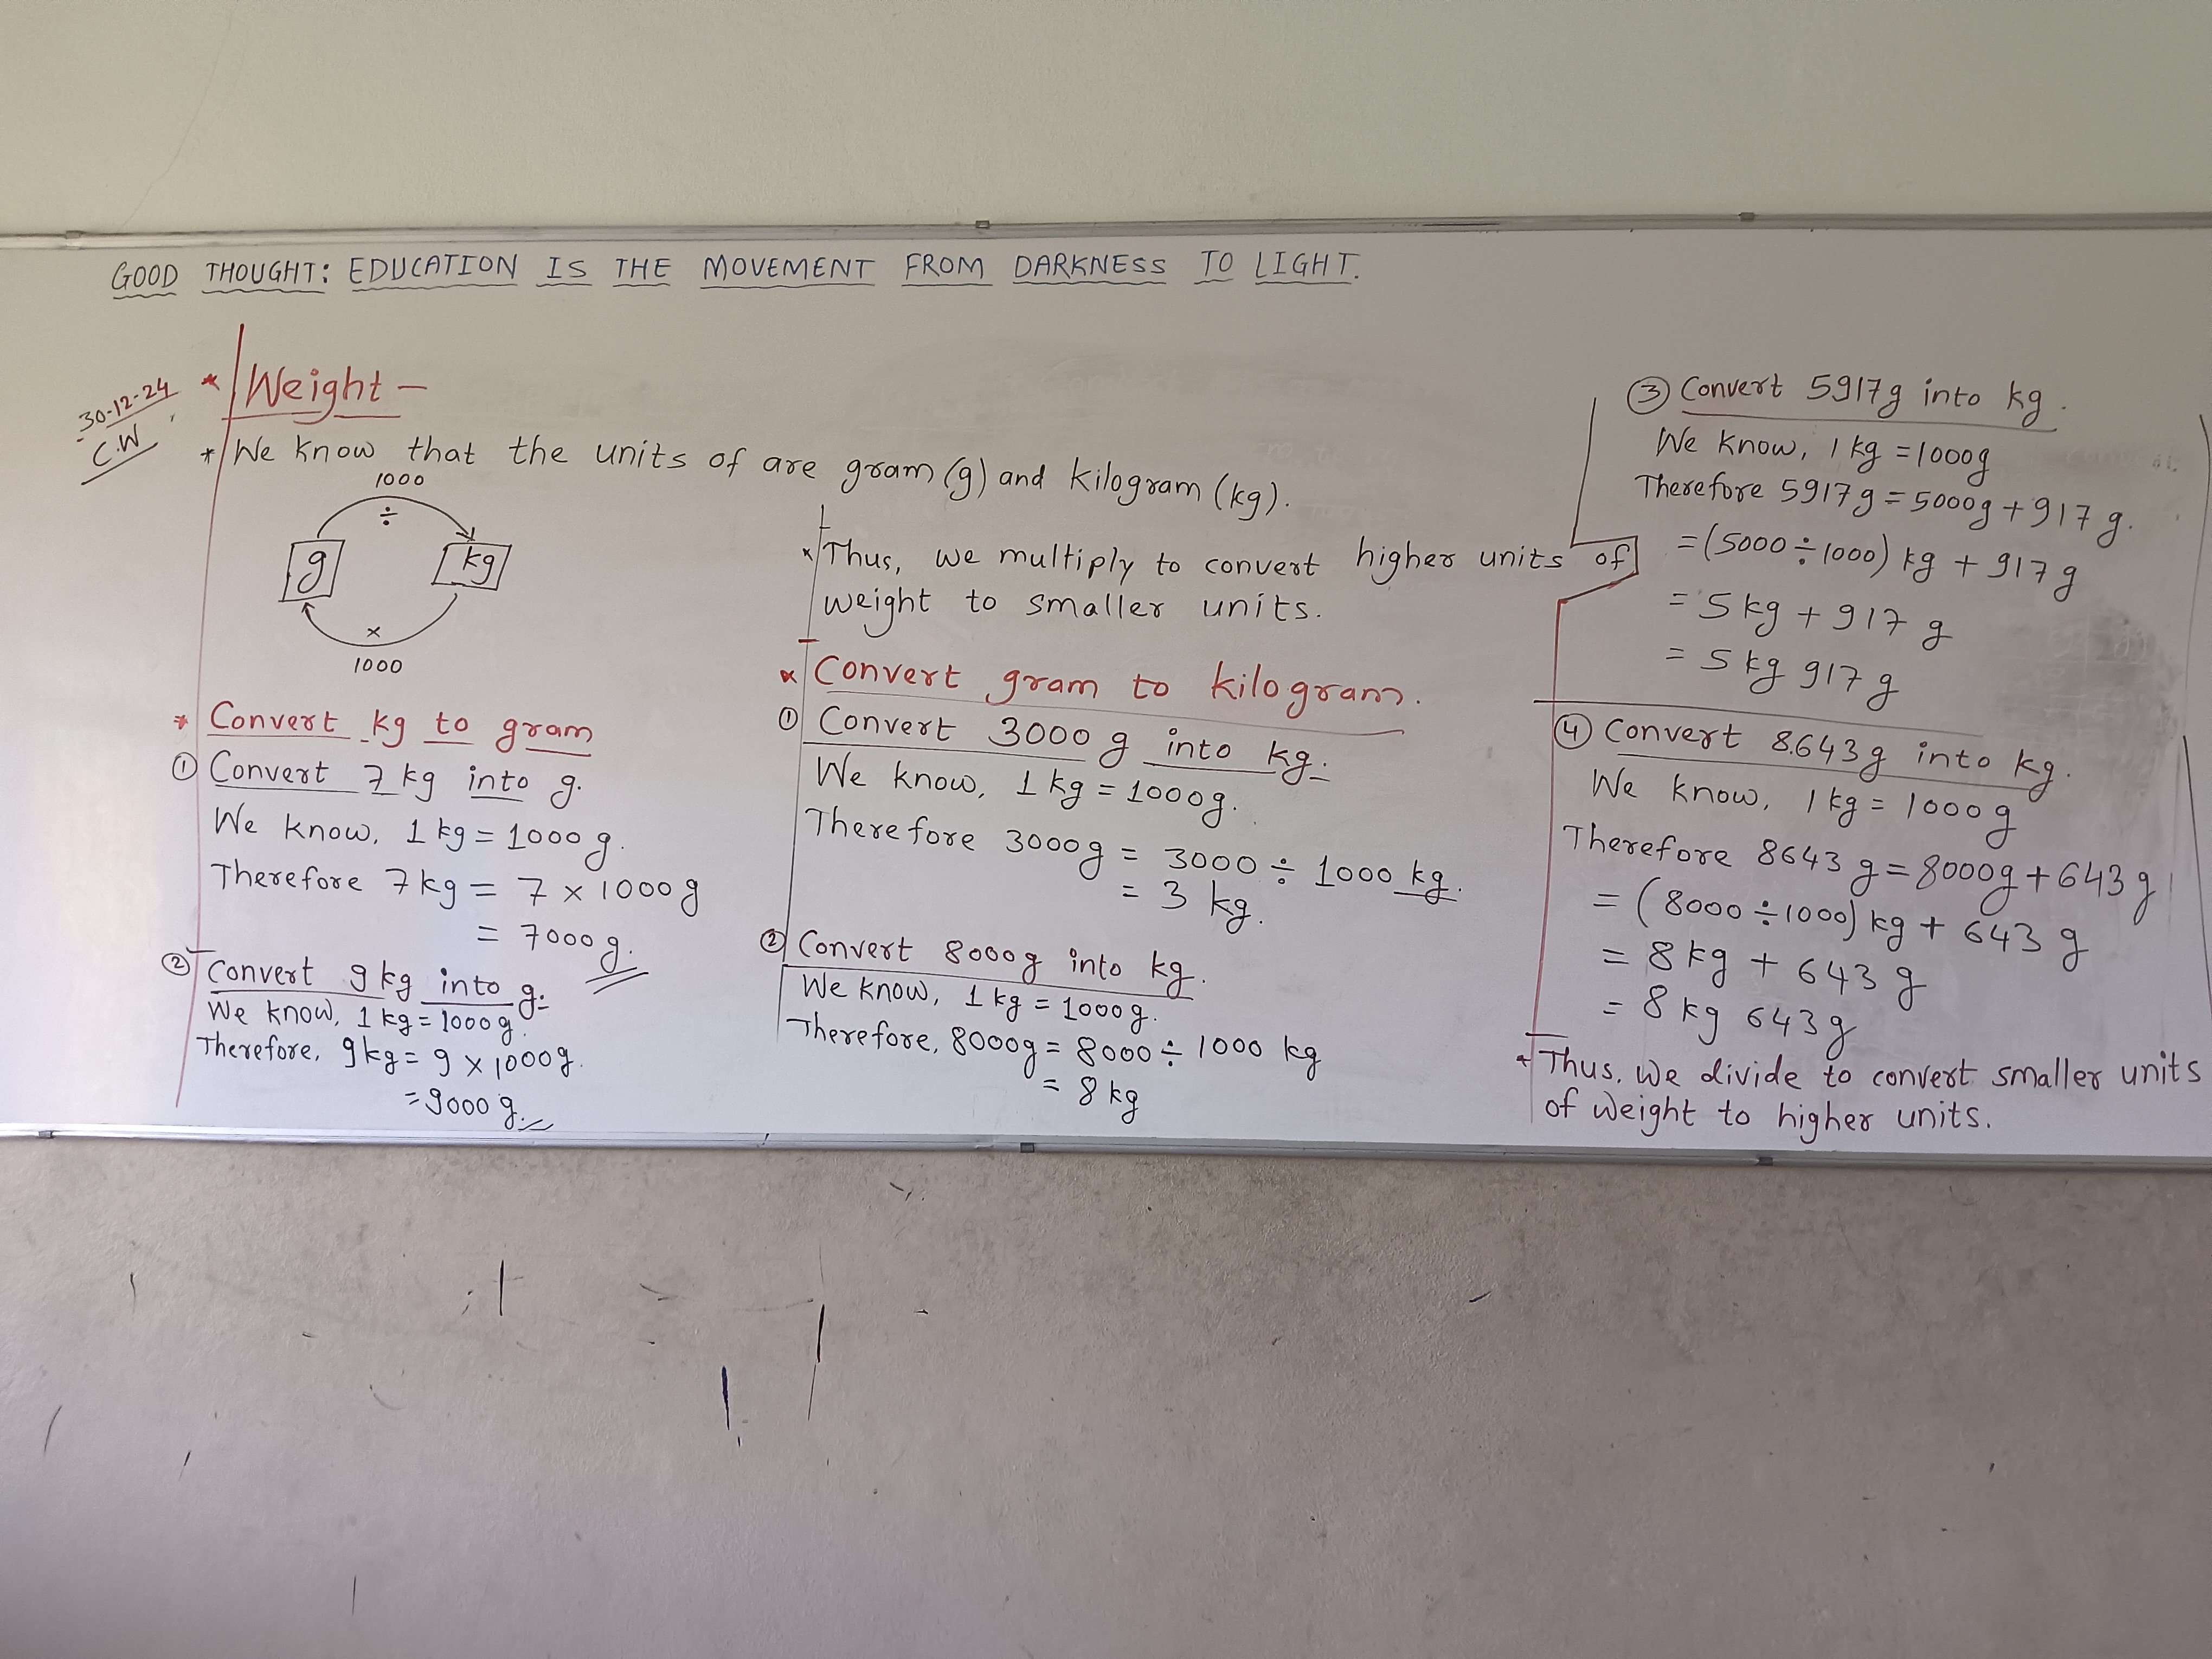 GOOD THOUGHT: EDUCATION IS THE MOVEMENT FROM DARKNESS TO LIGHT.
30-12-24
C.W
* Weight -
* We know that the units of are gram (g) and kilogram (kg).
1000
÷
g kg
×
1000
* Convert kg to gram
① Convert 7 kg into g.
We know, 1 kg = 1000 g.
Therefore 7 kg = 7 × 1000 g
= 7000 g.
② Convert 9 kg into g.
We know, 1 kg = 1000 g.
Therefore, 9 kg = 9 × 1000 g.
= 9000 g.
* Thus, we multiply to convert higher units of
weight to smaller units.
* Convert gram to kilogram.
① Convert 3000 g into kg.
We know, 1 kg = 1000 g.
Therefore 3000g = 3000 ÷ 1000 kg.
= 3 kg.
② Convert 8000g into kg.
We know, 1 kg = 1000 g.
Therefore, 8000g = 8000 ÷ 1000 kg
= 8 kg
③ Convert 5917g into kg.
We know, 1 kg = 1000g
Therefore 5917g = 5000g + 917 g.
= (5000 ÷ 1000) kg + 917 g
= 5 kg + 917 g
= 5 kg 917 g
④ Convert 8643g into kg.
We know, 1 kg = 1000 g
Therefore 8643 g = 8000g + 643 g
= (8000 ÷ 1000) kg + 643 g
= 8 kg + 643 g
= 8 kg 643 g
* Thus, We divide to convert smaller units
of weight to higher units.